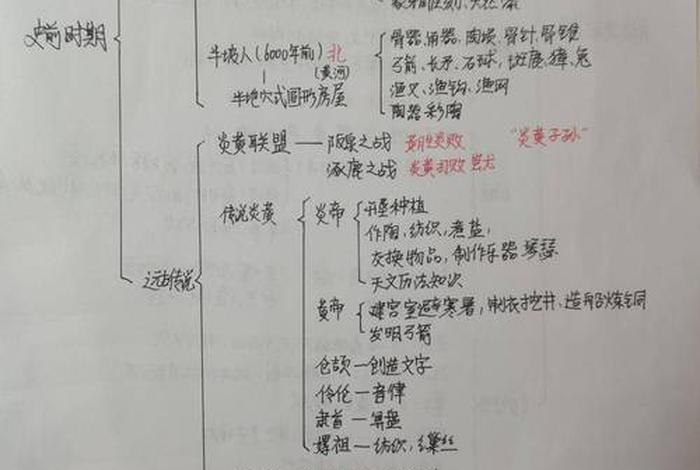 史前时期
半坡人(6000年前) 北
(黄河)
半地穴式圆形房屋
骨器、角器、陶埙、骨针、骨锥
弓箭、长矛、石球、斑鹿、獐、兔
渔叉、渔钩、渔网
陶器彩陶
远古传说
炎黄联盟 — 阪泉之战 黄胜炎败 "炎黄子孙"
涿鹿之战 炎黄打败蚩尤
传说炎黄
炎帝
开垦种植
作陶、纺织、煮盐,
交换物品, 制作乐器 琴瑟
天文历法知识
黄帝
建宫室避寒暑, 制衣挖井、造船炼铜
发明弓箭
仓颉—创造文字
伶伦—音律
隶首—算盘
嫘祖—纺织、缫丝